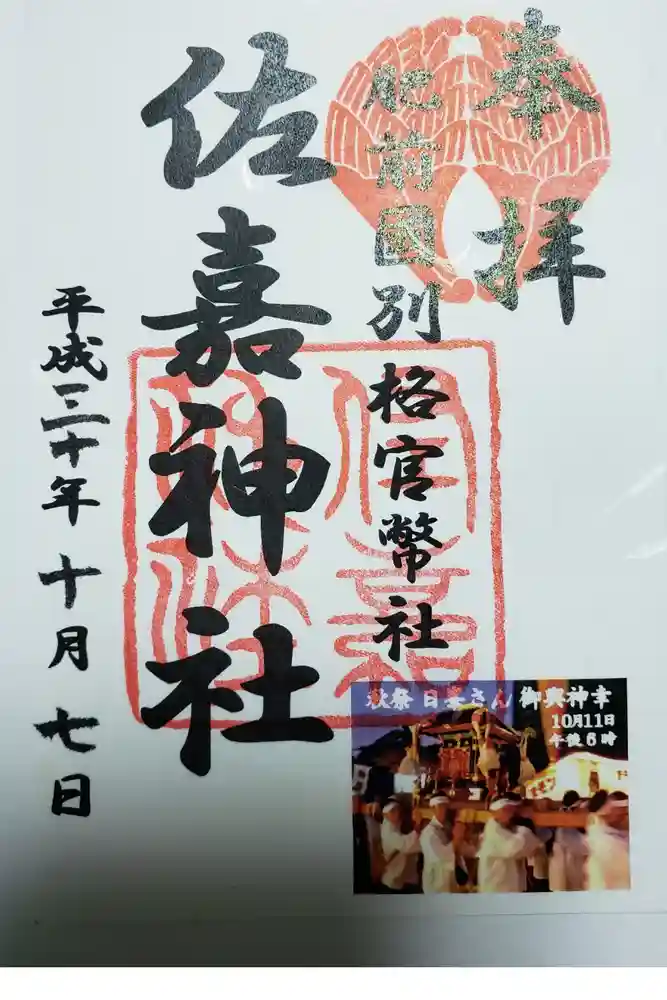 奉拝
肥前國別格官幣社
佐嘉神社
平成三十年十月七日
佐嘉
神社
秋祭 日峯さん 御輿神幸
10月11日
午後6時